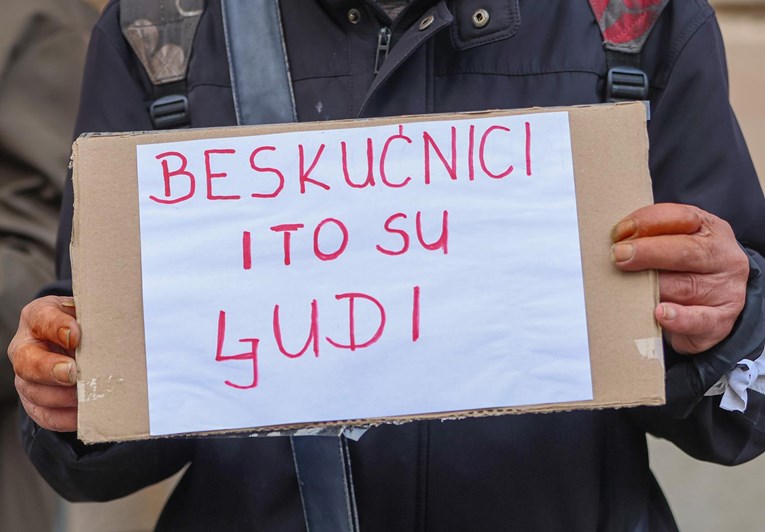 BESKUĆNICI
I TO SU
LJUDI